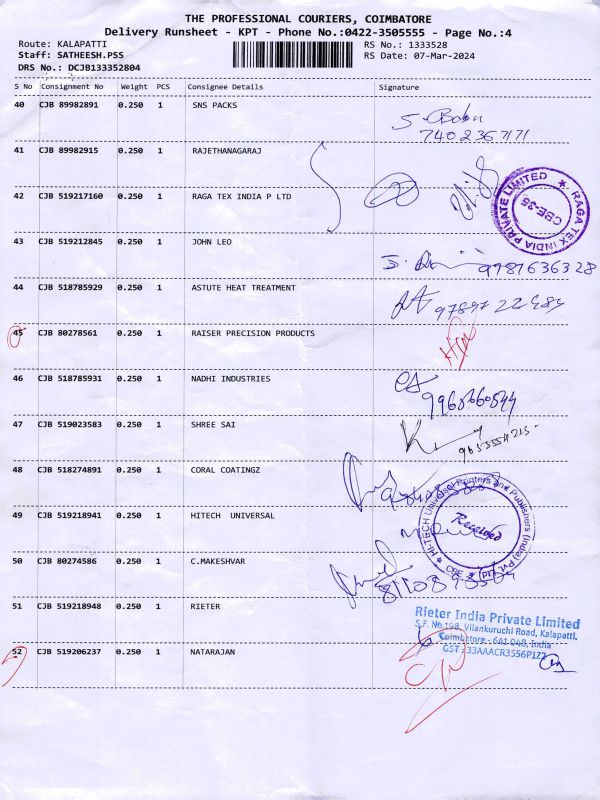 THE PROFESSIONAL COURIERS, COIMBATORE
Delivery Runsheet - KPT - Phone No.:0422-3505555 - Page No.:4
Route: KALAPATTI RS No.: 1333528
Staff: SATHEESH.PSS RS Date: 07-Mar-2024
DRS No.: DCJB133352804
S No Consignment No Weight PCS Consignee Details Signature
40 CJB 89982891 0.250 1 SNS PACKS
7402367171
41 CJB 89982915 0.250 1 RAJETHANAGARAJ
42 CJB 519217160 0.250 1 RAGA TEX INDIA P LTD
RAGA TEX INDIA PRIVATE LIMITED
CBE-35
43 CJB 519212845 0.250 1 JOHN LEO
9787636328
44 CJB 518785929 0.250 1 ASTUTE HEAT TREATMENT
45 CJB 80278561 0.250 1 RAISER PRECISION PRODUCTS
46 CJB 518785931 0.250 1 NADHI INDUSTRIES
47 CJB 519023583 0.250 1 SHREE SAI
48 CJB 518274891 0.250 1 CORAL COATINGZ
49 CJB 519218941 0.250 1 HITECH UNIVERSAL
HI-TECH Universal Printers and Publishers (India) Pvt.
Received
CBE
50 CJB 80274586 0.250 1 C.MAKESHVAR
51 CJB 519218948 0.250 1 RIETER
Rieter India Private Limited
S.F. No.198, Vilankuruchi Road, Kalapatti,
Coimbatore - 641 048, India
GST : 33AAACR3556P1Z2
52 CJB 519206237 0.250 1 NATARAJAN